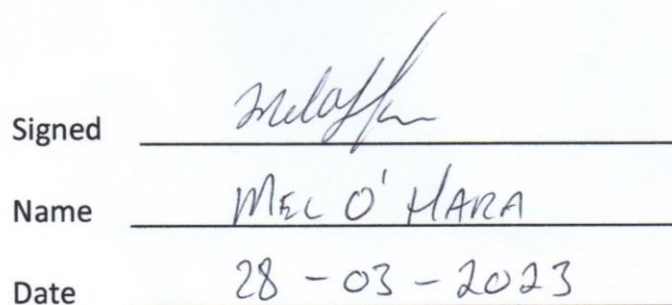 Signed
Name MEL O'HARA
Date 28-03-2023